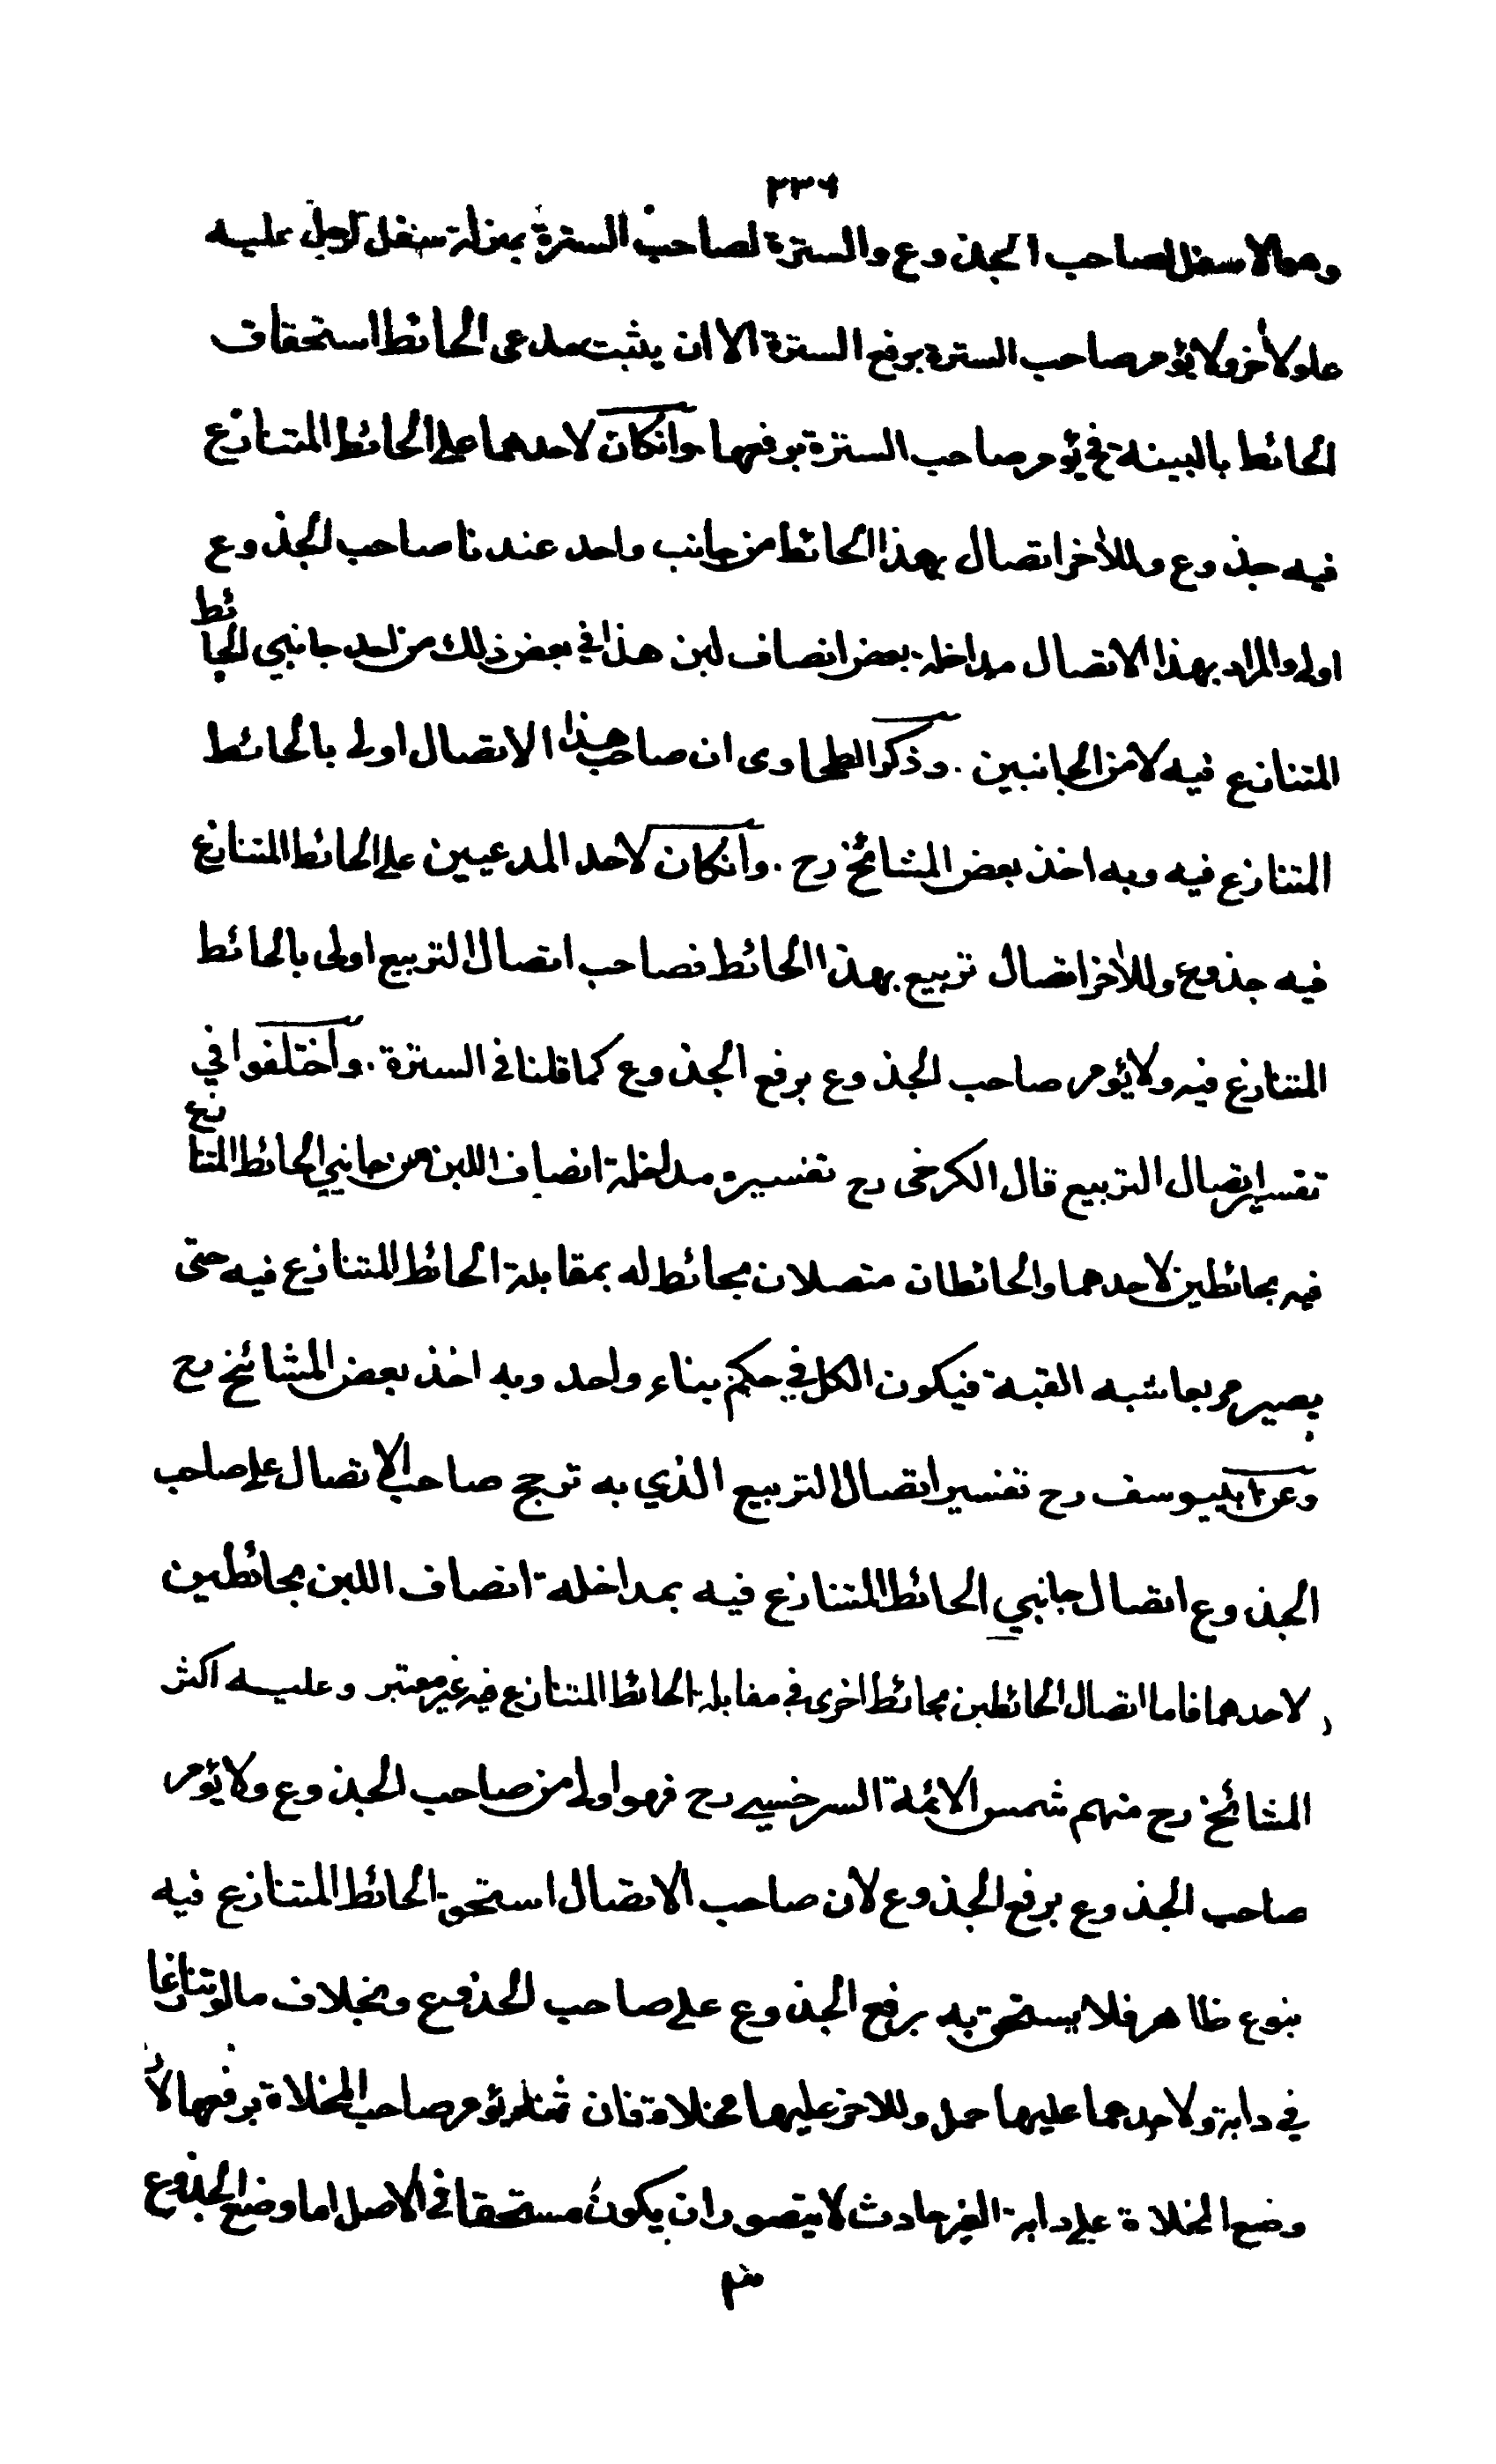 ٢٣٦
وهو الاسفل لصاحب الجذوع والسترة لصاحب السترة بمنزلة سفل لرجل عليه
علو لاخر ولا يؤمر صاحب السترة برفع السترة الا ان يثبت مدعى الحائط استحقاق
الحائط بالبينة فح يؤمر صاحب السترة برفعها وانكان لاحدهما على الحائط المتنازع
فيه جذوع وللاخر اتصال بهذا الحائط من جانب واحد عندنا صاحب الجذوع
اولى والمراد بهذا الاتصال مداخلة بعض انصاف لبن هذا في بعض ذلك من احد جانبي الحائط
المتنازع فيه لا من الجانبين . وذكر الطحاوى ان صاحب هذا الاتصال اولى بالحائط
المتنازع فيه وبه اخذ بعض المشائخ رح . وانكان لاحد المدعيين على الحائط المتنازع
فيه جذوع وللاخر اتصال تربيع بهذا الحائط فصاحب اتصال التربيع اولى بالحائط
المتنازع فيه ولا يؤمر صاحب الجذوع برفع الجذوع كما قلنا فى السترة . واختلفوا في
تفسير اتصال التربيع قال الكرخى رح تفسيره مداخلة انصاف اللبن من جانبي الحائط المتنازع
فيه بحائطين لاحدهما والحائطان متصلان بحائط له بمقابلة الحائط المتنازع فيه حتى
يصير مربعا شبه القبة فيكون الكل في حكم بناء واحد وبه اخذ بعض المشائخ رح
وعن ابى يوسف رح تفسير اتصال التربيع الذي به ترجح صاحب الاتصال على صاحب
الجذوع اتصال جانبي الحائط المتنازع فيه بمداخلة انصاف اللبن بحائطين
لاحدهما فاما اتصال الحائطين بحائط اخرى في مقابلة الحائط المتنازع فيه غير معتبر وعليه اكثر
المشائخ رح منهم شمس الائمة السرخسي رح فهو اولى من صاحب الجذوع ولا يؤمر
صاحب الجذوع برفع الجذوع لان صاحب الاتصال استحق الحائط المتنازع فيه
بنوع ظاهر فلا يستحق به برفع الجذوع على صاحب الجذوع وبخلاف ما لو تنازعا
في دابة ولاحدهما عليها حمل وللاخر عليها مخلاة فان ثمة يؤمر صاحب المخلاة برفعها لان
وضع المخلاة على دابة الغير حادث لا يتصور ان يكون مستحقا في الاصل اما وضع الجذوع